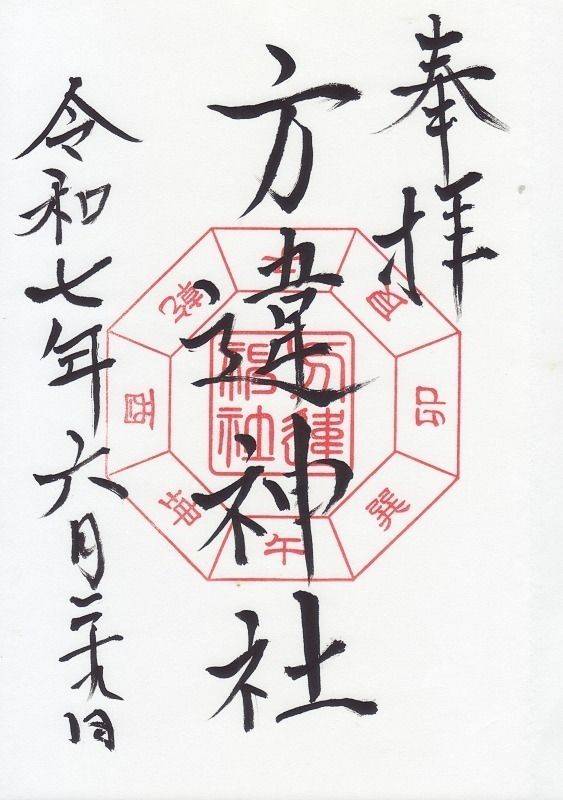 奉拝
方違神社
令和七年六月二十九日
方違
神社
艮
卯
巽
午
坤
酉
乾